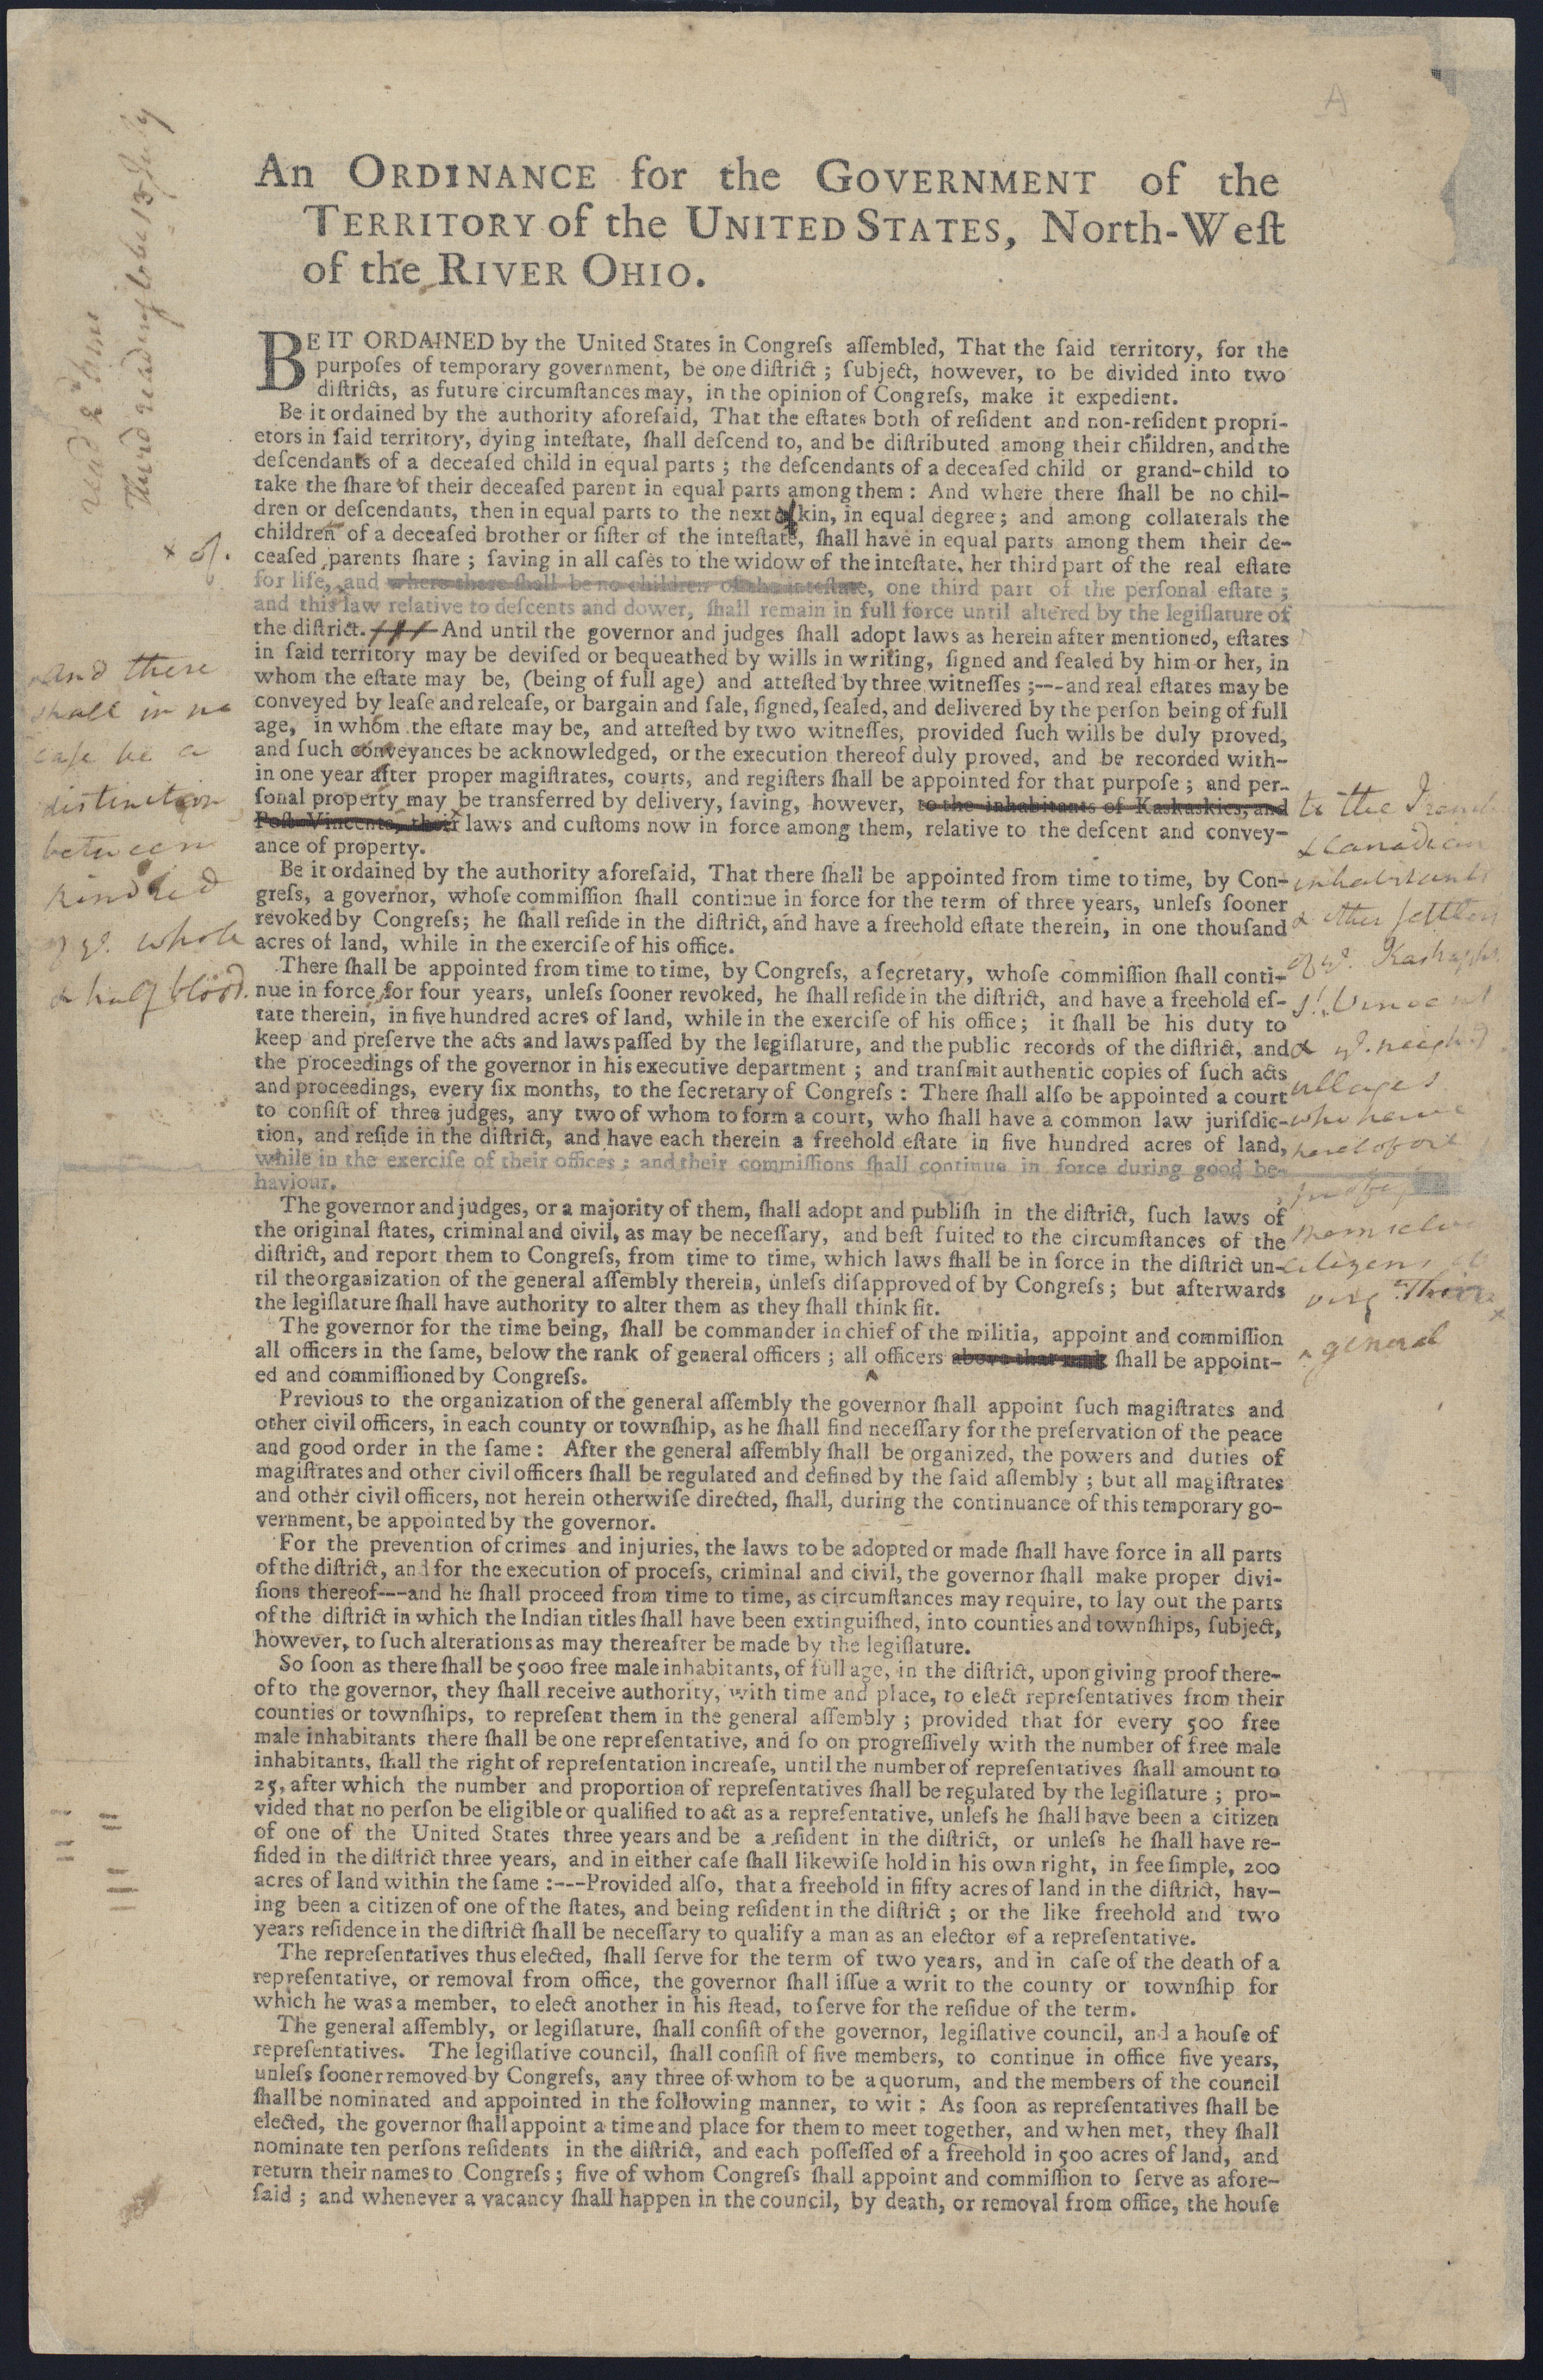 A
read 2d time
Third reading to be 13 July
An ORDINANCE for the GOVERNMENT of the
TERRITORY of the UNITED STATES, North-Weſt
of the RIVER OHIO.
BE IT ORDAINED by the United States in Congreſs aſſembled, That the ſaid territory, for the
purpoſes of temporary government, be one diſtrict ; ſubject, however, to be divided into two
diſtricts, as future circumſtances may, in the opinion of Congreſs, make it expedient.
Be it ordained by the authority aforeſaid, That the eſtates both of reſident and non-reſident propri-
etors in ſaid territory, dying inteſtate, ſhall deſcend to, and be diſtributed among their children, and the
deſcendants of a deceaſed child in equal parts ; the deſcendants of a deceaſed child or grand-child to
take the ſhare of their deceaſed parent in equal parts among them : And where there ſhall be no chil-
dren or deſcendants, then in equal parts to the next of kin, in equal degree ; and among collaterals the
children of a deceaſed brother or ſiſter of the inteſtate, ſhall have in equal parts among them their de-
ceaſed parents ſhare ; ſaving in all caſes to the widow of the inteſtate, her third part of the real eſtate
for life, and where there ſhall be no children of the inteſtate, one third part of the perſonal eſtate ;
and this law relative to deſcents and dower, ſhall remain in full force until altered by the legiſlature of
the diſtrict. And until the governor and judges ſhall adopt laws as herein after mentioned, eſtates
in ſaid territory may be deviſed or bequeathed by wills in writing, ſigned and ſealed by him or her, in
whom the eſtate may be, (being of full age) and atteſted by three witneſſes ;---and real eſtates may be
conveyed by leaſe and releaſe, or bargain and ſale, ſigned, ſealed, and delivered by the perſon being of full
age, in whom the eſtate may be, and atteſted by two witneſſes, provided ſuch wills be duly proved,
and ſuch conveyances be acknowledged, or the execution thereof duly proved, and be recorded with-
in one year after proper magiſtrates, courts, and regiſters ſhall be appointed for that purpoſe ; and per-
ſonal property may be transferred by delivery, ſaving, however, to the inhabitants of Kaskaskies, and
Poſt Vincents, their laws and cuſtoms now in force among them, relative to the deſcent and convey-
ance of property.
Be it ordained by the authority aforeſaid, That there ſhall be appointed from time to time, by Con-
greſs, a governor, whoſe commiſſion ſhall continue in force for the term of three years, unleſs ſooner
revoked by Congreſs; he ſhall reſide in the diſtrict, and have a freehold eſtate therein, in one thouſand
acres of land, while in the exerciſe of his office.
There ſhall be appointed from time to time, by Congreſs, a ſecretary, whoſe commiſſion ſhall conti-
nue in force for four years, unleſs ſooner revoked, he ſhall reſide in the diſtrict, and have a freehold eſ-
tate therein, in five hundred acres of land, while in the exerciſe of his office; it ſhall be his duty to
keep and preſerve the acts and laws paſſed by the legiſlature, and the public records of the diſtrict, and
the proceedings of the governor in his executive department ; and tranſmit authentic copies of ſuch acts
and proceedings, every ſix months, to the ſecretary of Congreſs : There ſhall alſo be appointed a court
to conſiſt of three judges, any two of whom to form a court, who ſhall have a common law juriſdic-
tion, and reſide in the diſtrict, and have each therein a freehold eſtate in five hundred acres of land,
while in the exerciſe of their offices ; and their commiſſions ſhall continue in force during good be-
haviour.
The governor and judges, or a majority of them, ſhall adopt and publiſh in the diſtrict, ſuch laws of
the original ſtates, criminal and civil, as may be neceſſary, and beſt ſuited to the circumſtances of the
diſtrict, and report them to Congreſs, from time to time, which laws ſhall be in force in the diſtrict un-
til the organization of the general aſſembly therein, unleſs diſapproved of by Congreſs; but afterwards
the legiſlature ſhall have authority to alter them as they ſhall think fit.
The governor for the time being, ſhall be commander in chief of the militia, appoint and commiſſion
all officers in the ſame, below the rank of general officers ; all officers above that rank ſhall be appoint-
ed and commiſſioned by Congreſs.
Previous to the organization of the general aſſembly the governor ſhall appoint ſuch magiſtrates and
other civil officers, in each county or townſhip, as he ſhall find neceſſary for the preſervation of the peace
and good order in the ſame : After the general aſſembly ſhall be organized, the powers and duties of
magiſtrates and other civil officers ſhall be regulated and defined by the ſaid aſſembly ; but all magiſtrates
and other civil officers, not herein otherwiſe directed, ſhall, during the continuance of this temporary go-
vernment, be appointed by the governor.
For the prevention of crimes and injuries, the laws to be adopted or made ſhall have force in all parts
of the diſtrict, and for the execution of proceſs, criminal and civil, the governor ſhall make proper divi-
ſions thereof---and he ſhall proceed from time to time, as circumſtances may require, to lay out the parts
of the diſtrict in which the Indian titles ſhall have been extinguiſhed, into counties and townſhips, ſubject,
however, to ſuch alterations as may thereafter be made by the legiſlature.
So ſoon as there ſhall be 5000 free male inhabitants, of full age, in the diſtrict, upon giving proof there-
of to the governor, they ſhall receive authority, with time and place, to elect repreſentatives from their
counties or townſhips, to repreſent them in the general aſſembly ; provided that for every 500 free
male inhabitants there ſhall be one repreſentative, and ſo on progreſſively with the number of free male
inhabitants, ſhall the right of repreſentation increaſe, until the number of repreſentatives ſhall amount to
25, after which the number and proportion of repreſentatives ſhall be regulated by the legiſlature ; pro-
vided that no perſon be eligible or qualified to act as a repreſentative, unleſs he ſhall have been a citizen
of one of the United States three years and be a reſident in the diſtrict, or unleſs he ſhall have re-
ſided in the diſtrict three years, and in either caſe ſhall likewiſe hold in his own right, in fee ſimple, 200
acres of land within the ſame :---Provided alſo, that a freehold in fifty acres of land in the diſtrict, hav-
ing been a citizen of one of the ſtates, and being reſident in the diſtrict ; or the like freehold and two
years reſidence in the diſtrict ſhall be neceſſary to qualify a man as an elector of a repreſentative.
The repreſentatives thus elected, ſhall ſerve for the term of two years, and in caſe of the death of a
repreſentative, or removal from office, the governor ſhall iſſue a writ to the county or townſhip for
which he was a member, to elect another in his ſtead, to ſerve for the reſidue of the term.
The general aſſembly, or legiſlature, ſhall conſiſt of the governor, legiſlative council, and a houſe of
repreſentatives. The legiſlative council, ſhall conſiſt of five members, to continue in office five years,
unleſs ſooner removed by Congreſs, any three of whom to be a quorum, and the members of the council
ſhall be nominated and appointed in the following manner, to wit : As ſoon as repreſentatives ſhall be
elected, the governor ſhall appoint a time and place for them to meet together, and when met, they ſhall
nominate ten perſons reſidents in the diſtrict, and each poſſeſſed of a freehold in 500 acres of land, and
return their names to Congreſs ; five of whom Congreſs ſhall appoint and commiſſion to ſerve as afore-
ſaid ; and whenever a vacancy ſhall happen in the council, by death, or removal from office, the houſe
x of.
and there
shall in no
caſe be a
distinction
between
kindred
of ye. whole
& half blood.
to the French
& Canadian
inhabitants
& other ſettlers
of ye. Kaskaskies
St. Vincent
& ye.
villages
who have
heretofore
citizens of
general